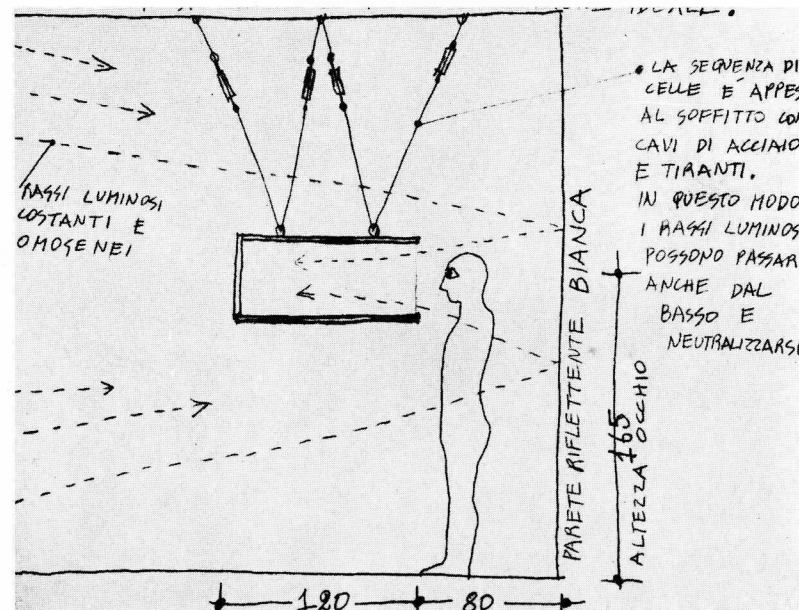 IDEALE.
LA SEQUENZA DI
CELLE E' APPES
AL SOFFITTO CON
CAVI DI ACCIAIO
E TIRANTI.
IN QUESTO MODO
I RAGGI LUMINOS
POSSONO PASSAR
ANCHE DAL
BASSO E
NEUTRALIZZARSI
RAGGI LUMINOSI
COSTANTI E
OMOGENEI
PARETE RIFLETTENTE BIANCA
165
ALTEZZA OCCHIO
120
80